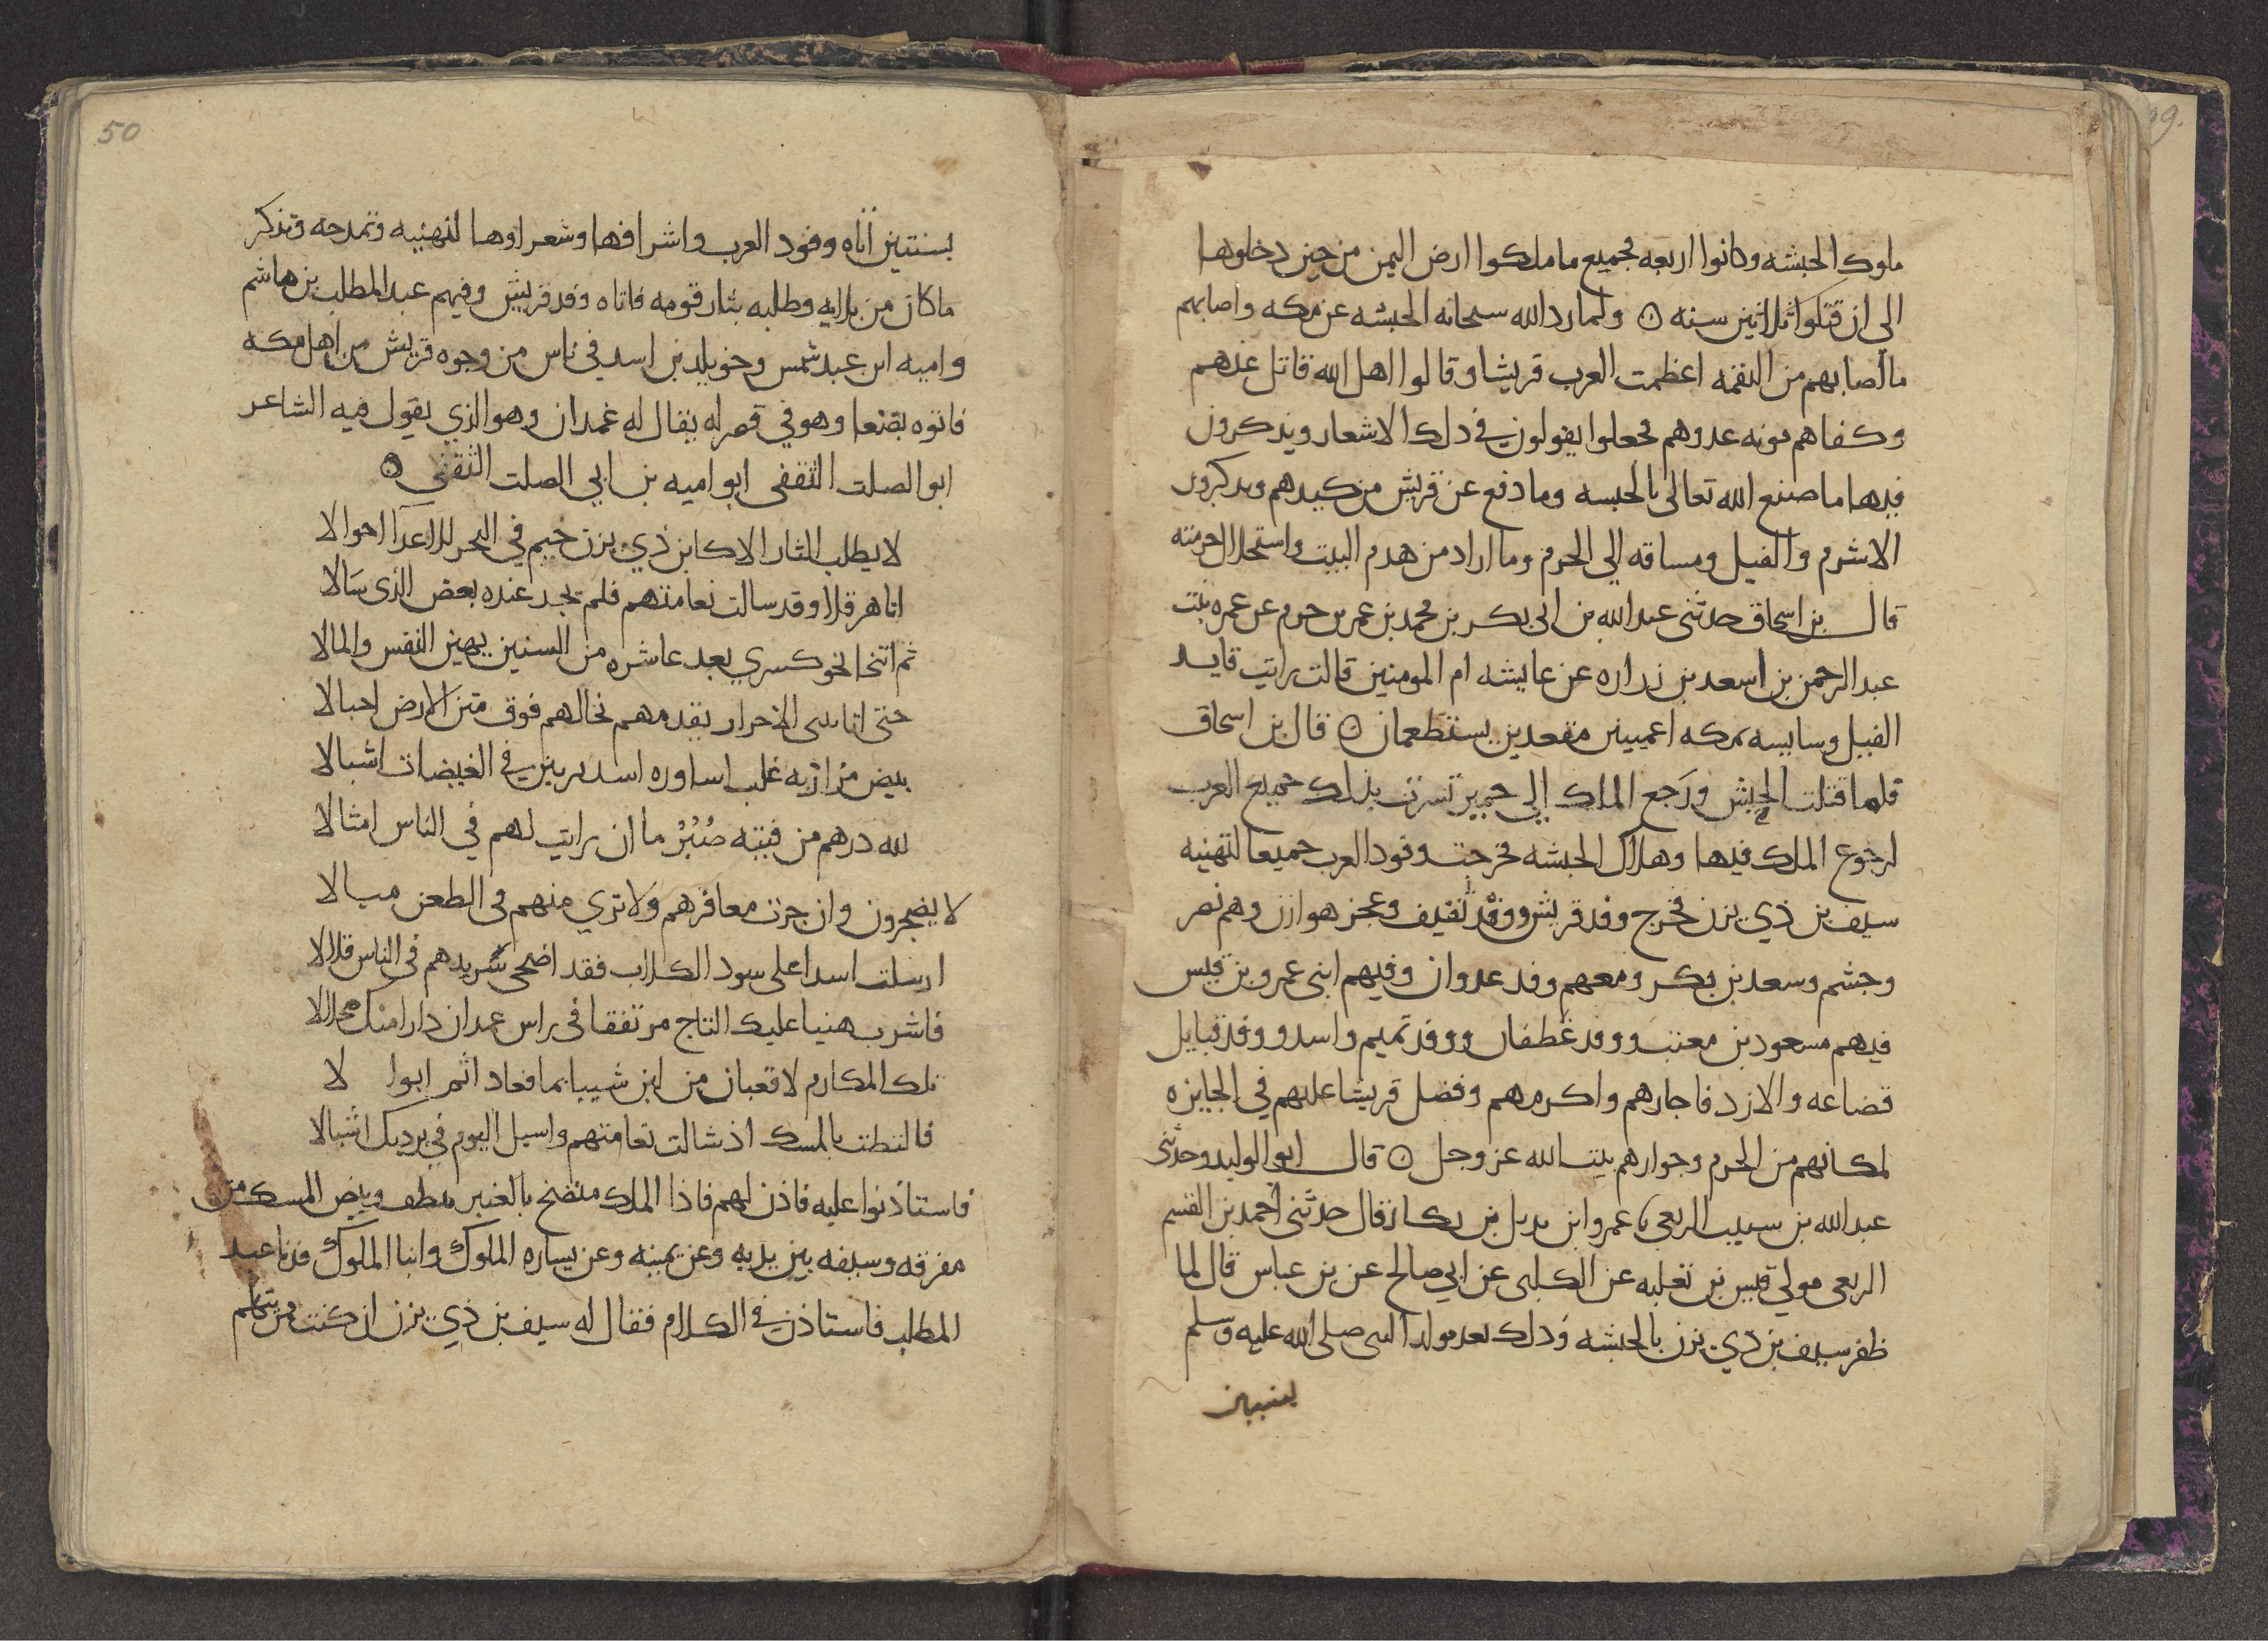 99.
ملوك الحبشه وكانوا اربعه فجميع ما ملكوا ارض اليمن من حين دخلوها
الى ان قتلوا ثلاثين سنه ۞ ولما رد الله سبحانه الحبشه عن مكه واصابهم
ما اصابهم من النقمه اعظمت العرب قريشا وقالوا اهل الله قاتل عنهم
وكفاهم مونه عدوهم فجعلوا يقولون في ذلك الاشعار ويذكرون
فيها ما صنع الله تعالى بالحبشه وما دفع عن قريش من كيدهم ويدكرون
الاشرم والفيل ومساقه الي الحرم وما اراد من هدم البيت واستحلال حرمته
قال بن اسحاق حدثنى عبد الله بن ابى بكر بن محمد بن عمر بن حزم عن عمره بنت
عبد الرحمن بن اسعد بن زراره عن عايشه ام المومنين قالت رايت قايد
الفيل وسايسه بمكه اعميين مقعدين يستطعمان ۞ قال بن اسحاق
فلما قتلت الحبش ورجع الملك الي حمير تسرت بذلك جميع العرب
لرجوع الملك فيها وهلاك الحبشه فخرجت وفود العرب جميعا لتهنيه
سيف بن ذي يزن فخرج وفد قريش ووفد ثقيف وعجز هوازن وهم نصر
وجشم وسعد بن بكر ومعهم وفد عدوان وفيهم ابنى عمرو بن قيس
فيهم مسعود بن معتب ووفد غطفان ووفد تميم واسد ووفد قبايل
قضاعه والازد فاجارهم واكرمهم وفضل قريشا عليهم في الجايزه
لمكانهم من الحرم وجوارهم بيت الله عز وجل ۞ قال ابو الوليد وحدثنى
عبد الله بن سبيب الربعي با عمرو ابن بديل بن بكار قال حدثنى احمد بن القسم
الربعى مولي قيس بن ثعلبه عن الكلبى عن ابي صالح عن بن عباس قال لما
ظفر سيف بن ذي يزن بالحبشه وذلك بعد مولد النبى صلى الله عليه وسلم
بسنتين
50
بسنتين اتاه وفود العرب واشرافها وشعراوها لتهنييه وتمدحه وتذكر
ما كان من بلايه وطلبه بثار قومه فاتاه وفد قريش وفيهم عبد المطلب بن هاشم
واميه ابن عبد شمس وخويلد بن اسد في ناس من وجوه قريش من اهل مكه
فاتوه بصنعا وهو في قصر له يقال له غمدان وهو الذي يقول فيه الشاعر
ابو الصلت الثقفى ابو اميه بن ابي الصلت الثقفي ۞
لا يطلب الثار الا كابن ذي يزن خيم في البحر للاعدآ احوالا
اتا هرقلا وقد سالت نعامتهم فلم يجد عنده بعض الذى سالا
ثم انتحا نحو كسري بعد عاشره من السنين يهين النفس والمالا
حتى اتا ببنى الاحرار يقدمهم تخالهم فوق متن الارض اجبالا
بيض مرازبه غلب اساوره اسد يربين في الغيضات اشبالا
لله درهم من فتيه صُبُرُ ما ان رايت لهم في الناس امثالا
لا يضجرون وان جزت معافرهم ولا تري منهم فى الطعن ميالا
ارسلت اسدا على سود الكلاب فقد اضحى شريدهم فى الناس فلالا
فاشرب هنيا عليك التاج مرتفقا فى راس غمدان دارا منك محلالا
تلك المكارم لا قعبان من لبن شيبا بما فعاد اثم ابوا لا
فالتطت بالمسك اذ شالت نعامتهم واسبل اليوم في برديك اشبالا
فاستاذنوا عليه فاذن لهم فاذا الملك متضخ بالعنبر يلطف وبيض المسك من
مفرقه وسيفه بين يديه وعن يمينه وعن يساره الملوك وابنا الملوك فدنا عبد
المطلب فاستاذن في الكلام فقال له سيف بن ذي يزن ان كنت ممن يتكلم